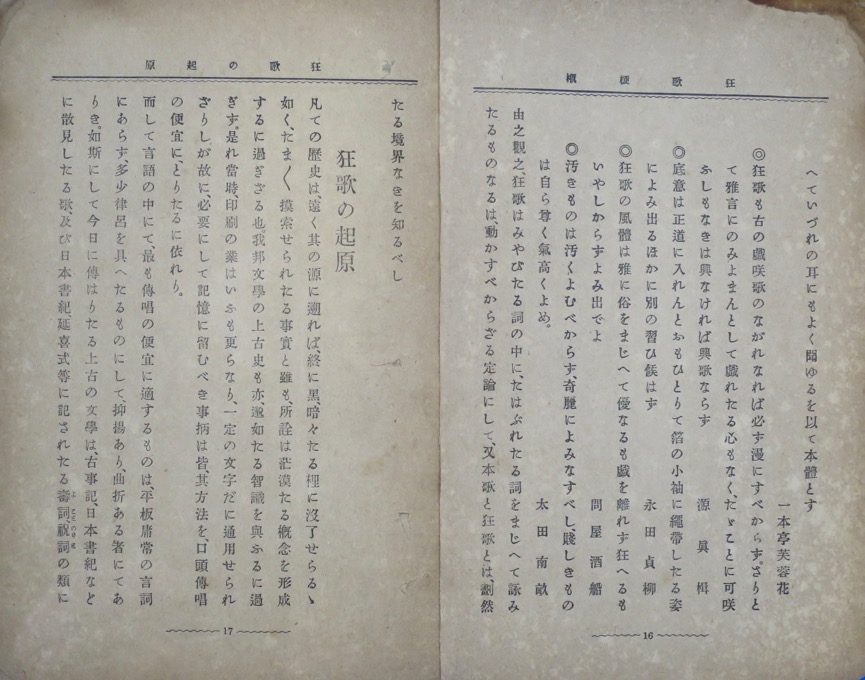 狂歌極樞
へていづれの耳にもよく聞ゆるを以て本體とす
一本亭芙蓉花
◎狂歌も古の戯咲歌のながれなれば必ず漫にすべからず。さりと
て雅言にのみよまんとして戯れたる心もなく、たゞことに可咲
ふしもなきは興なければ興歌ならず
源眞楫
◎底意は正道に入れんとおもひとりて箔の小袖に繩帶したる姿
によみ出るほかに別の習ひ候はず
永田貞柳
◎狂歌の風體は雅に俗をまじへて優なるも戯を離れず狂へるも
いやしからずよみ出でよ
問屋酒船
◎汚きものは汚くよむべからず、奇麗によみなすべし、賤しきもの
は自ら尊く氣高くよめ。
太田南畝
由之觀之、狂歌はみやびたる詞の中に、たはぶれたる詞をまじへて詠み
たるものなるは、動かすべからざる定論にして、又本歌と狂歌とは、劃然
16
狂歌の起原
たる境界なきを知るべし
狂歌の起原
凡ての歴史は、遠く其の源に遡れば終に黑、暗々たる裡に沒了せらるゝ
如く、たま〱摸索せられたる事實と雖も、所詮は茫漠たる概念を形成
するに過ぎざる也、我邦文學の上古史も亦、邈如たる智識を與ふるに過
ぎず。是れ當時、印刷の業はいふも更らなり、一定の文字だに通用せられ
ざりしが故に、必要にして記憶に留むべき事柄は皆、其方法を、口頭傳唱
の便宜に、とりたるに依れり。
而して言語の中にて、最も傳唱の便宜に適するものは、平板庸常の言詞
にあらず、多少律呂を具へたるものにして、抑揚あり、曲折ある者にてあ
りき。如斯にして今日に傳はりたる上古の文學は、古事記、日本書紀など
に散見したる歌、及び日本書紀、延喜式等に記されたる壽詞祝詞の類に
17